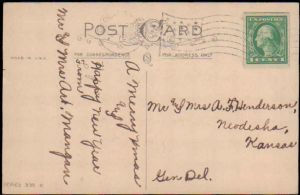 POST CARD
FOR CORRESPONDENCE
FOR ADDRESS ONLY
MADE IN U.S.A.
1 CENT 1
A Merry Xmas
&
Happy New Year
From
Mr & Mrs Art. Mangan
Mr & Mrs A. F. Henderson,
Neodesha,
Kansas
Gen Del.
SERIES